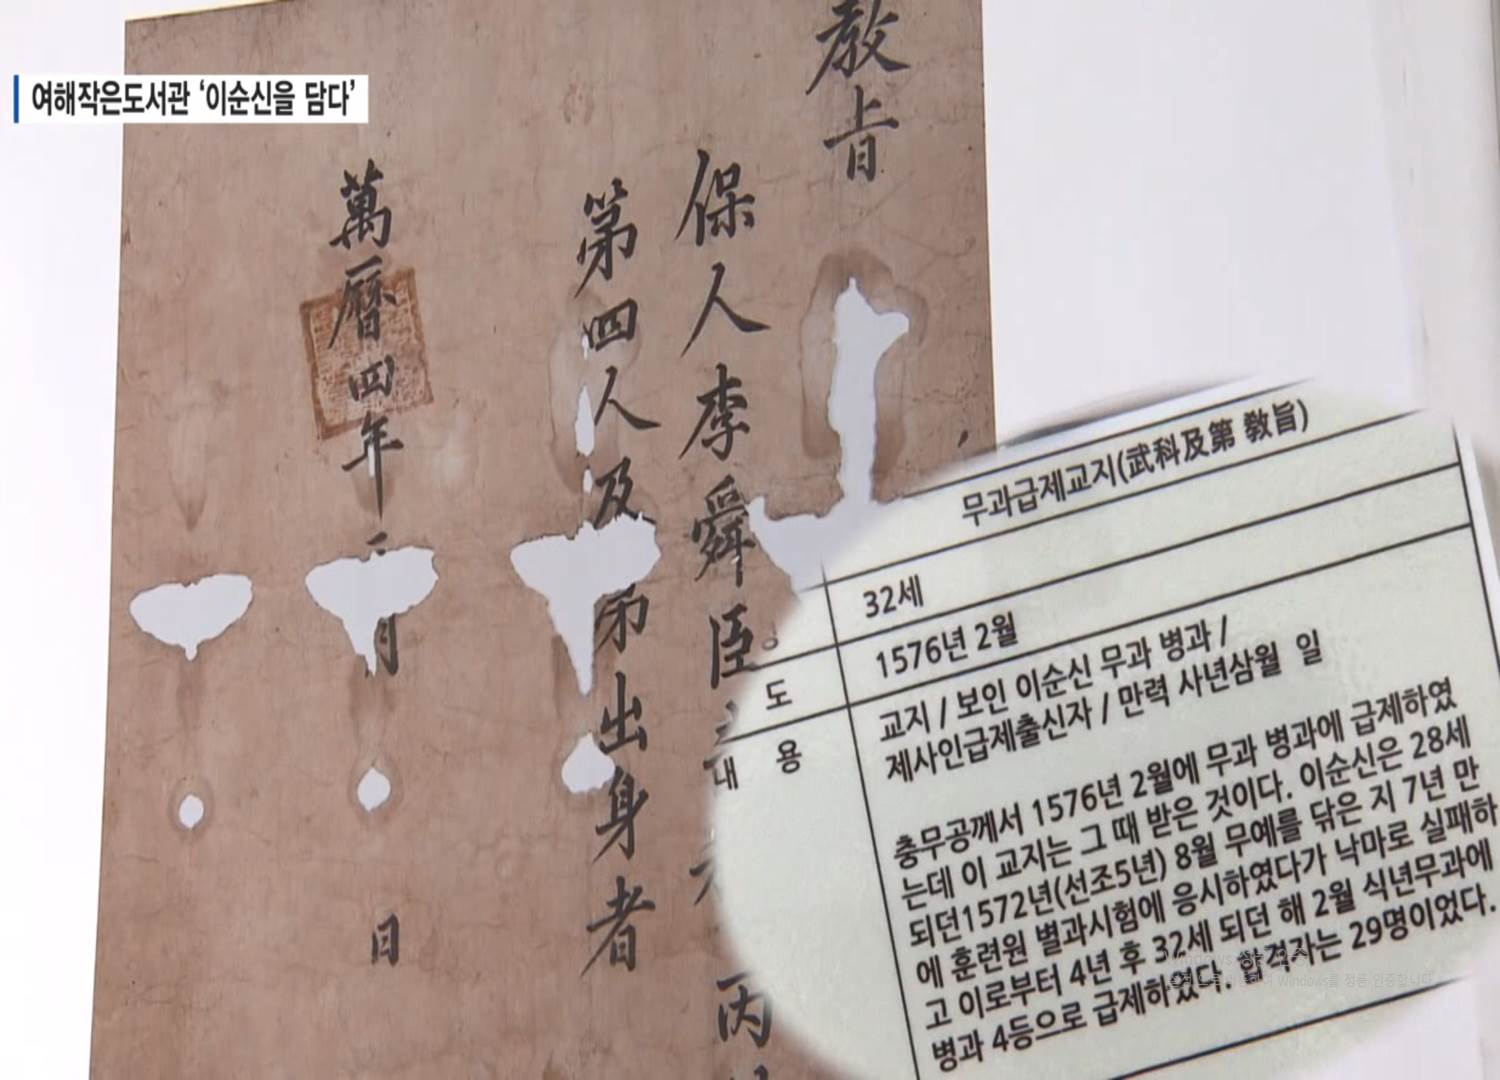 여해작은도서관 ‘이순신을 담다’
教旨
保人李舜臣
丙
第四人及第出身者
萬曆四年二月 日
무과급제교지(武科及第 敎旨)
32세
도 1576년 2월
내 용 교지 / 보인 이순신 무과 병과 /
제사인급제출신자 / 만력 사년삼월 일
충무공께서 1576년 2월에 무과 병과에 급제하였
는데 이 교지는 그 때 받은 것이다. 이순신은 28세
되던1572년(선조5년) 8월 무예를 닦은 지 7년 만
에 훈련원 별과시험에 응시하였다가 낙마로 실패하
고 이로부터 4년 후 32세 되던 해 2월 식년무과에
병과 4등으로 급제하였다. 합격자는 29명이었다.